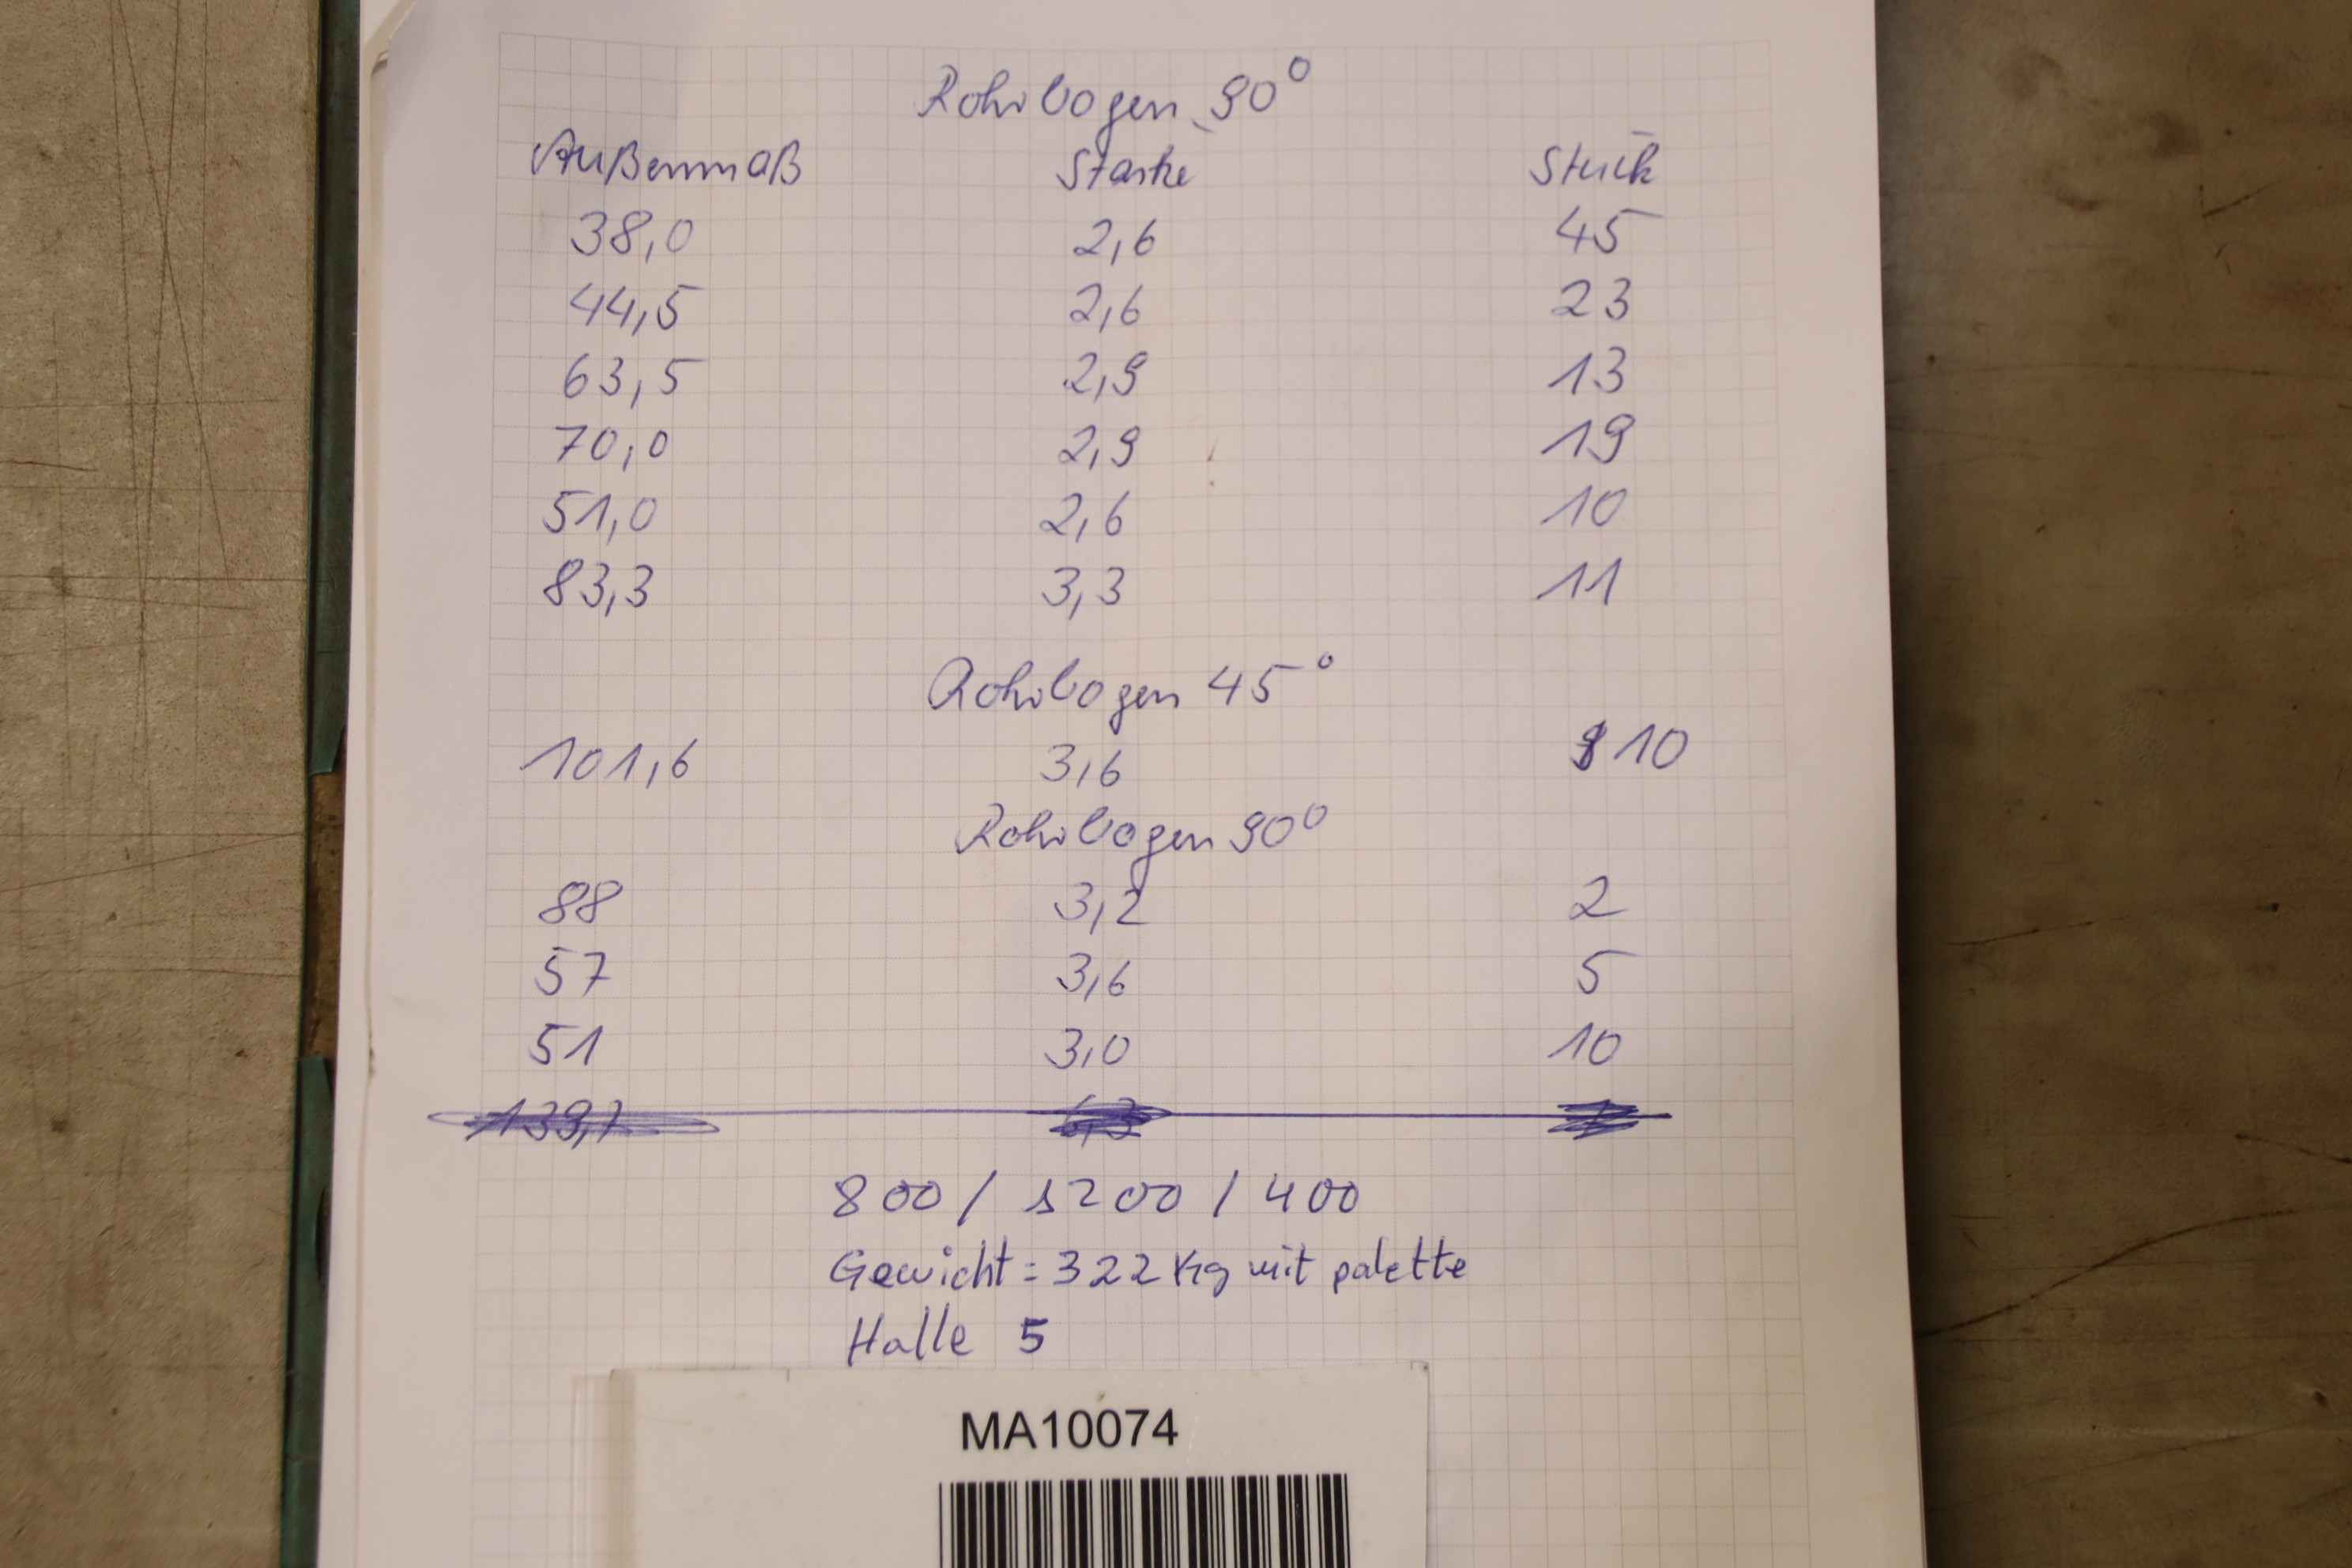 Rohrbogen 90°
Außenmaß Starke Stück
38,0 2,6 45
44,5 2,6 23
63,5 2,9 13
70,0 2,9 19
51,0 2,6 10
83,3 3,3 11
Rohrbogen 45°
101,6 3,6 10
Rohrbogen 90°
88 3,2 2
57 3,6 5
51 3,0 10
139,7 6,3
800 / 1200 / 400
Gewicht = 322 Kg mit palette
Halle 5
MA10074